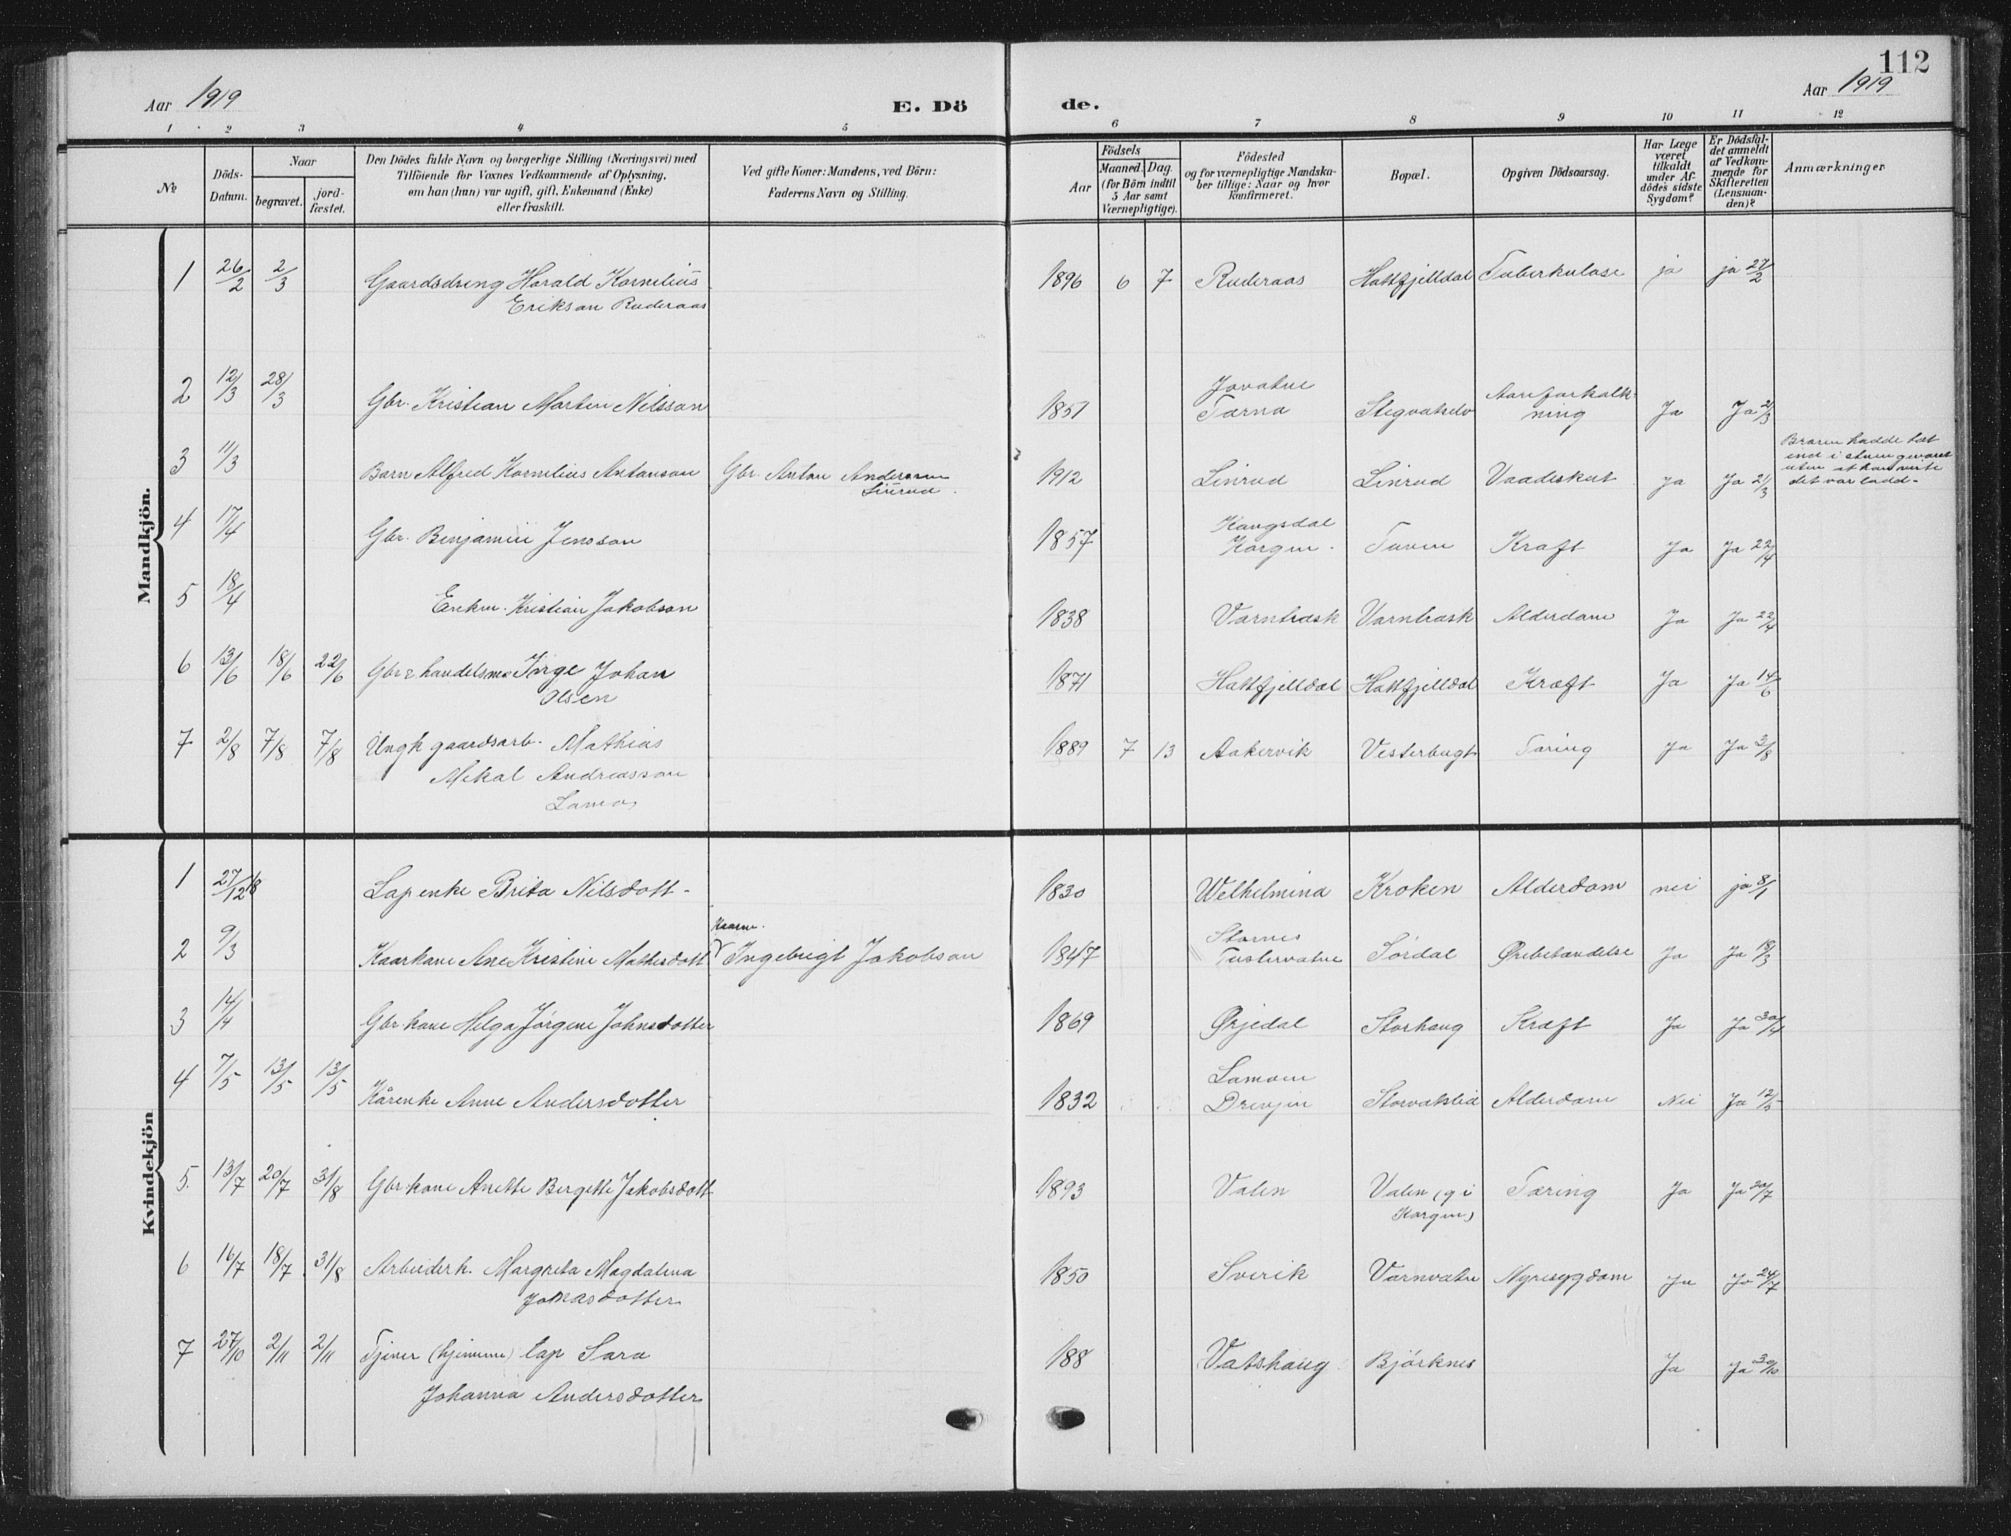 112
Aar 1919 E. Dö de. Aar 1919
1 2 3 4 5 6 7 8 9 10 11 12
№
Döds-Datum.
Naar
begravet.
jord-fæstet.
Den Dödes fulde Navn og borgerlige Stilling (Næringsvei) med
Tilföiende for Voxnes Vedkommende af Oplysning,
om han (hun) var ugift, gift, Enkemand (Enke)
eller fraskilt.
Ved gifte Koner: Mandens, ved Börn:
Faderens Navn og Stilling.
Aar
Födsels
Maaned. Dag.
(for Börn indtil
5 Aar samt
Værnepligtige).
Födested
og for værnepligtige Mandska-
ber tillige: Naar og hvor
Konfirmeret.
Bopæl.
Opgiven Dödsaarsag.
Har Læge
været
tilkaldt
under Af-
dödes sidste
Sygdom?
Er Dödsfal-
det anmeldt
af Vedkom-
mende for
Skifteretten
(Lensman-
den)?
Anmærkninger
Mandkjön.
1 26/2 2/3 Gaardsdreng Harald Kornelius 1896 6 7 Ruderaas Hattfjelldal Tuberkulose ja ja 27/2
Erikson Ruderaas
2 12/3 28/3 Gbr. Kristian Morten Nilsson 1851 Jovatne
Tærna Stegvatselv Aareforkalk-
ning Ja Ja 21/3
3 11/3 Barn Alfred Kornelius Antonson Gbr. Anton Anderson
Linrud. 1912 Linrud Linrud Vaadeskut ja Ja 21/3
Broren hadde tat
uten at han viste
det var ladd.
4 17/4 Gbr. Benjamin Jensson 1857 Kangsdal
Korgen. Tuven Kræft Ja Ja 22/4
5 18/4 Enkm. Kristian Jakobson 1838 Varntræsk Varntræsk Alderdom Ja Ja 22/4
6 13/6 18/6 22/6 Gbr & handelsm. Inge Johan
Olsen 1871 Hattfjelldal Hattfjelldal Kræft Ja Ja 14/6
7 2/8 7/8 7/8 Ungk gaardsarb. Mathias
Mikal Andreasson 1889 7 13 Aakervik Vesterbugt Tæring Ja Ja 3/8
Kvindekjön
1 27/12 18 Lapenke Brita Nilsdott- 1830 Welhelmina Kroken Alderdom nei ja 8/1
2 9/3 Kaarkone Ane Kristine Mathisdott Kaarm.
Ingebrigt Jakobson 1847 Stornes
Tustervatne Sördal Ørebetændelse Ja Ja 18/3
3 14/4 Gbr kone Helga Jörgine Johnsdotter 1869 Ørjedal Storhaug Kræft Ja Ja 30/4
4 7/5 13/5 13/5 Kårenke Anne Andersdotter 1832 Lamoen
Drevjen Storvatslid Alderdom Nei Ja 12/5
5. 13/7 20/7 31/8 Gbr-kone Anette Bergette Jakobsdott 1893 Valen Valen (g i
Korgen) Tæring Ja Ja 20/7
6 16/7 18/7 31/8 Arbeiderk. Margreta Magdalena
Jonasdotter 1850 Sverik Varnvatne Nyresygdom Ja Ja 24/7
7 27/10 2/11 2/11 Tjener (hjemme) lap Sara
Johanna Andersdotter 188 Vatshaug Björknes Ja Ja 30/10